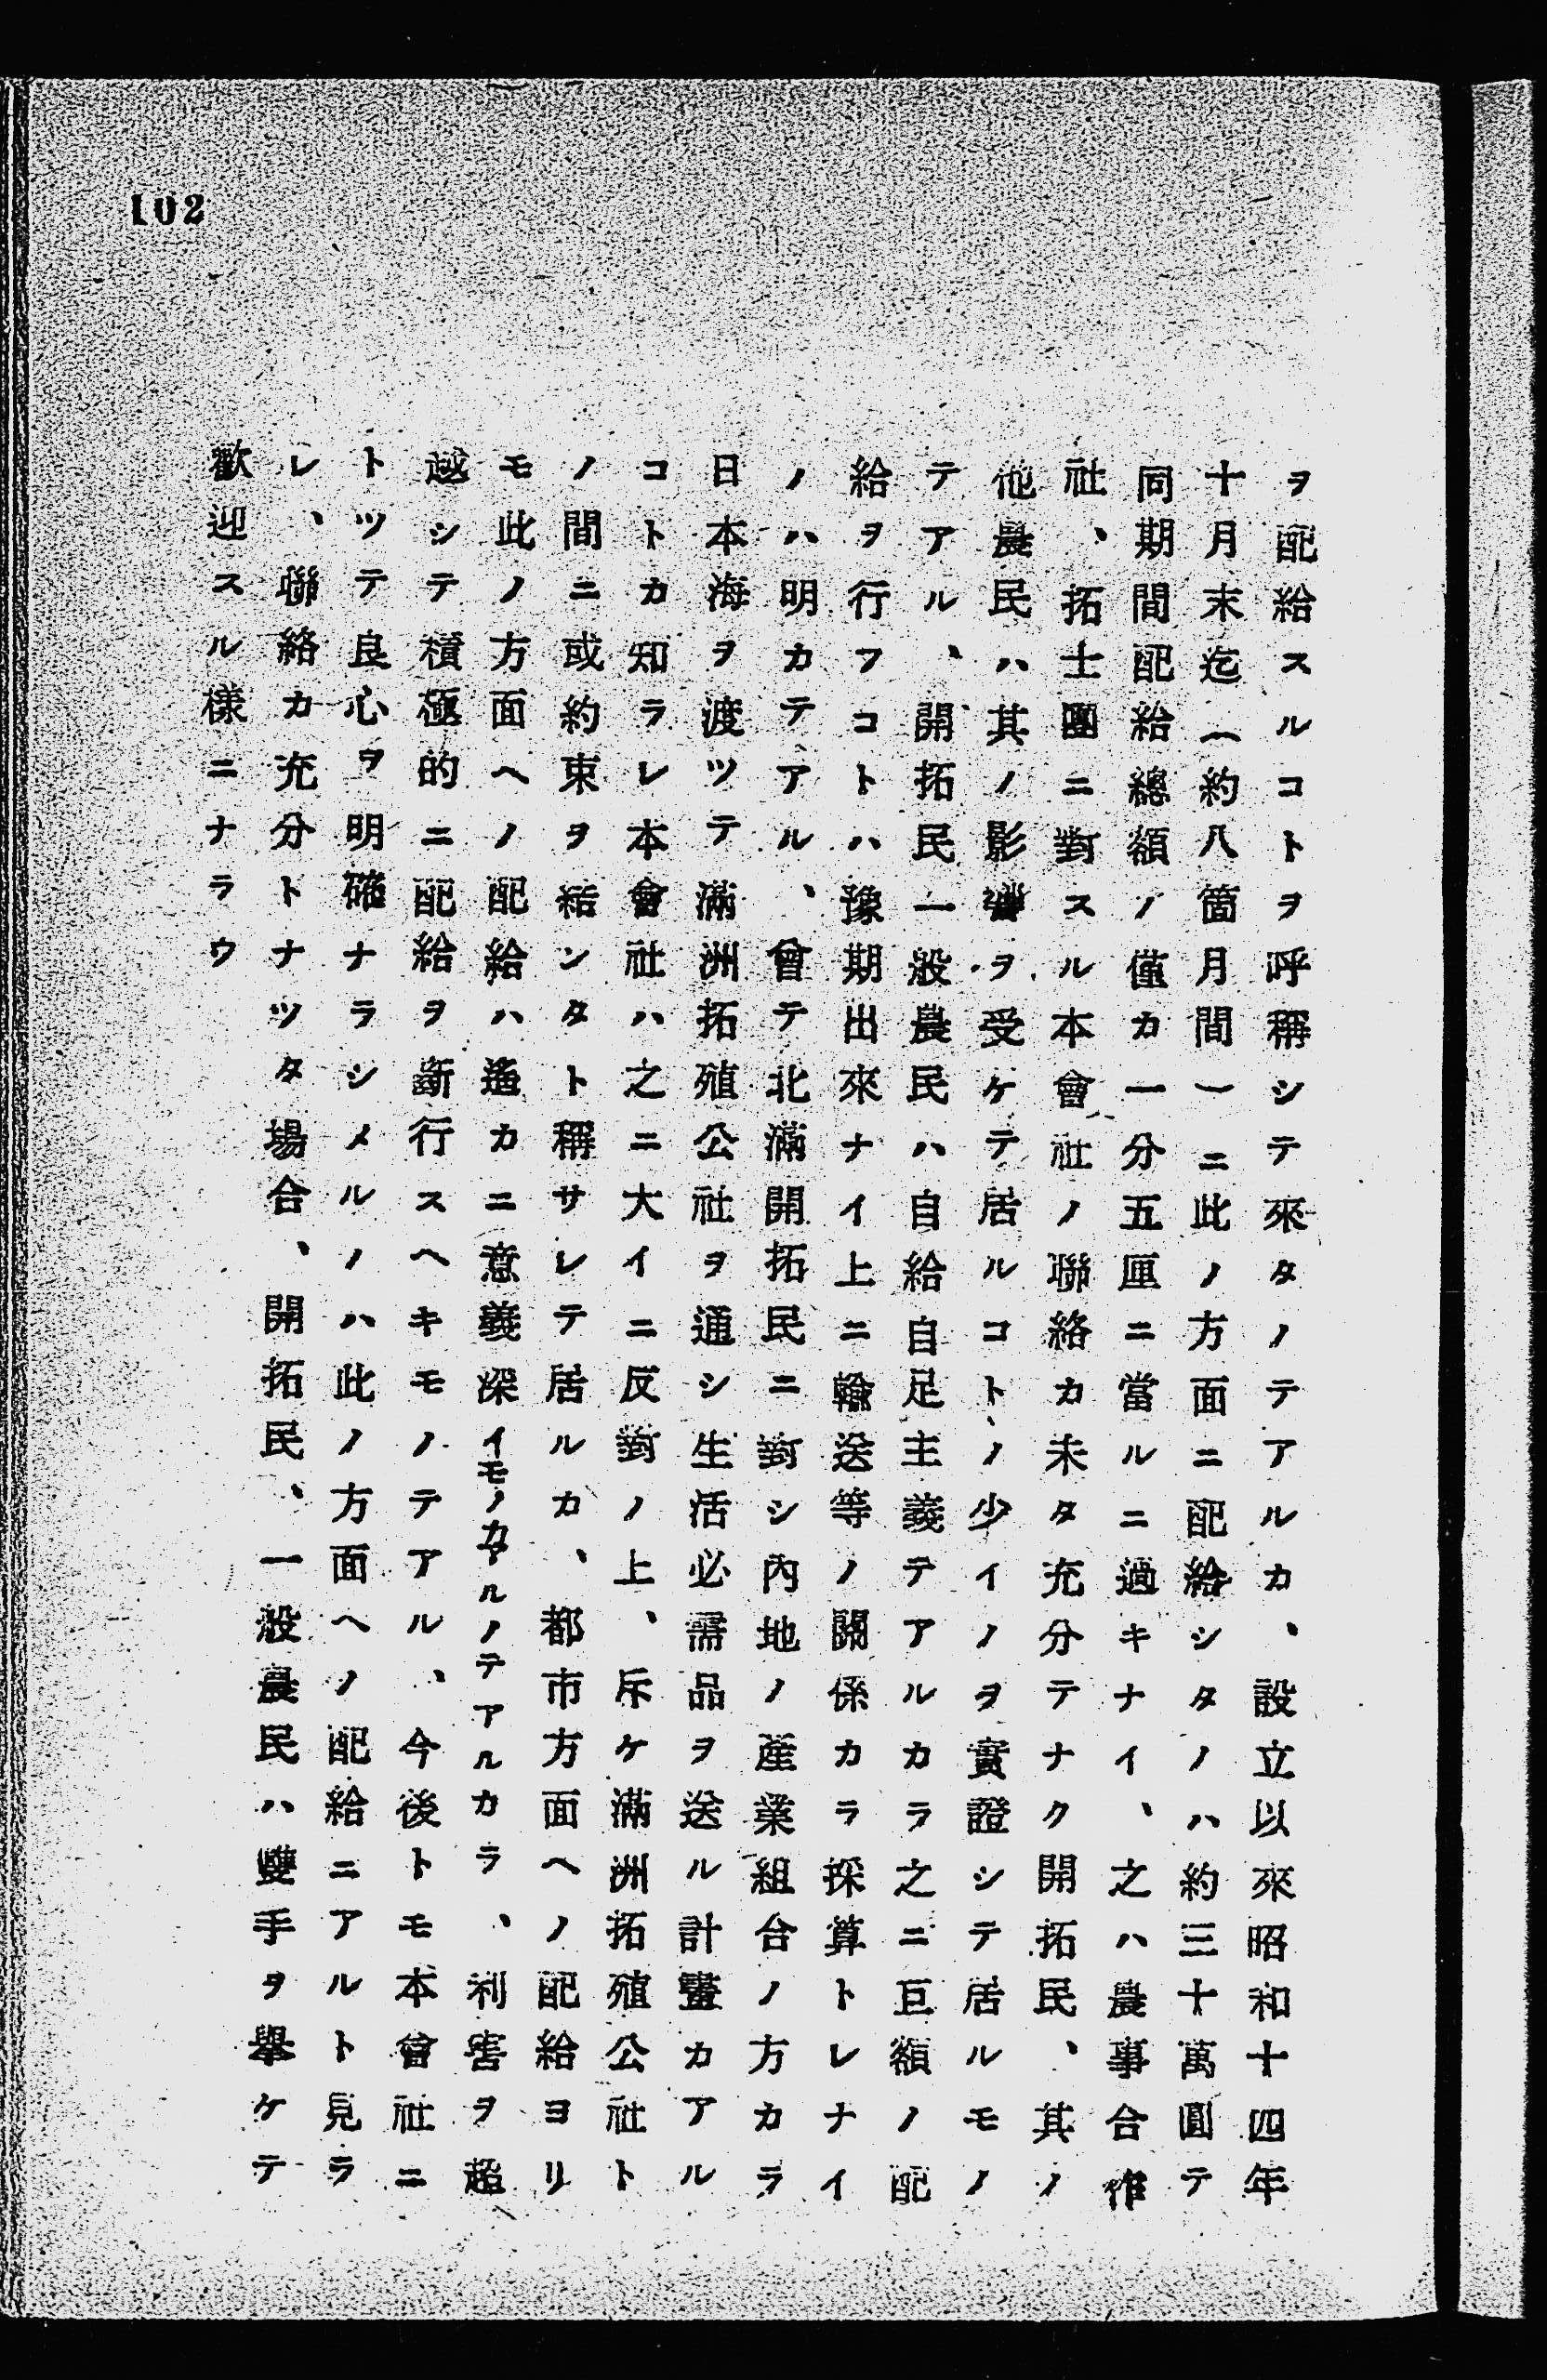 102
ヲ配給スルコトヲ呼稱シテ來タノテアルカ、設立以來昭和十四年
十月末迄(約八箇月間)ニ此ノ方面ニ配給シタノハ約三十萬圓テ
同期間配給總額ノ僅カ一分五厘ニ當ルニ過キナイ、之ハ農事合作
社、拓士團ニ對スル本會社ノ聯絡カ未タ充分テナク開拓民、其ノ
他農民ハ其ノ影響ヲ受ケテ居ルコトノ少イノヲ實證シテ居ルモノ
テアル、開拓民一般農民ハ自給自足主義テアルカラ之ニ巨額ノ配
給ヲ行フコトハ豫期出來ナイ上ニ輸送等ノ關係カラ採算トレナイ
ノハ明カテアル、曾テ北滿開拓民ニ對シ內地ノ產業組合ノ方カラ
日本海ヲ渡ツテ滿洲拓殖公社ヲ通シ生活必需品ヲ送ル計畫カアル
コトカ知ラレ本會社ハ之ニ大イニ反對ノ上、斥ケ滿洲拓殖公社ト
ノ間ニ或約束ヲ結ンタト稱サレテ居ルカ、都市方面ヘノ配給ヨリ
モ此ノ方面ヘノ配給ハ遙カニ意義深イモノカアルノテアルカラ、利害ヲ超
越シテ積極的ニ配給ヲ斷行スヘキモノテアル、今後トモ本會社ニ
トツテ良心ヲ明確ナラシメルノハ此ノ方面ヘノ配給ニアルト見ラ
レ、聯絡カ充分トナツタ場合、開拓民、一般農民ハ雙手ヲ擧ケテ
歡迎スル樣ニナラウ